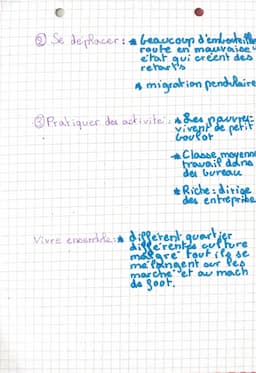 ② Se deplacer : * beaucoup d'embouteille
route en mauvaise
etat qui créent des
retarts
* migration pendulaire
③ Pratiquer des activité : * Les pauvre :
vivent de petit
boulot
* Classe moyenne
travail dans
des bureau
* Riche : dirige
des entreprise
Vivre ensemble : * différent quartier
différente culture
malgré tout ils se
mélangent sur les
marché et au mach
de foot.